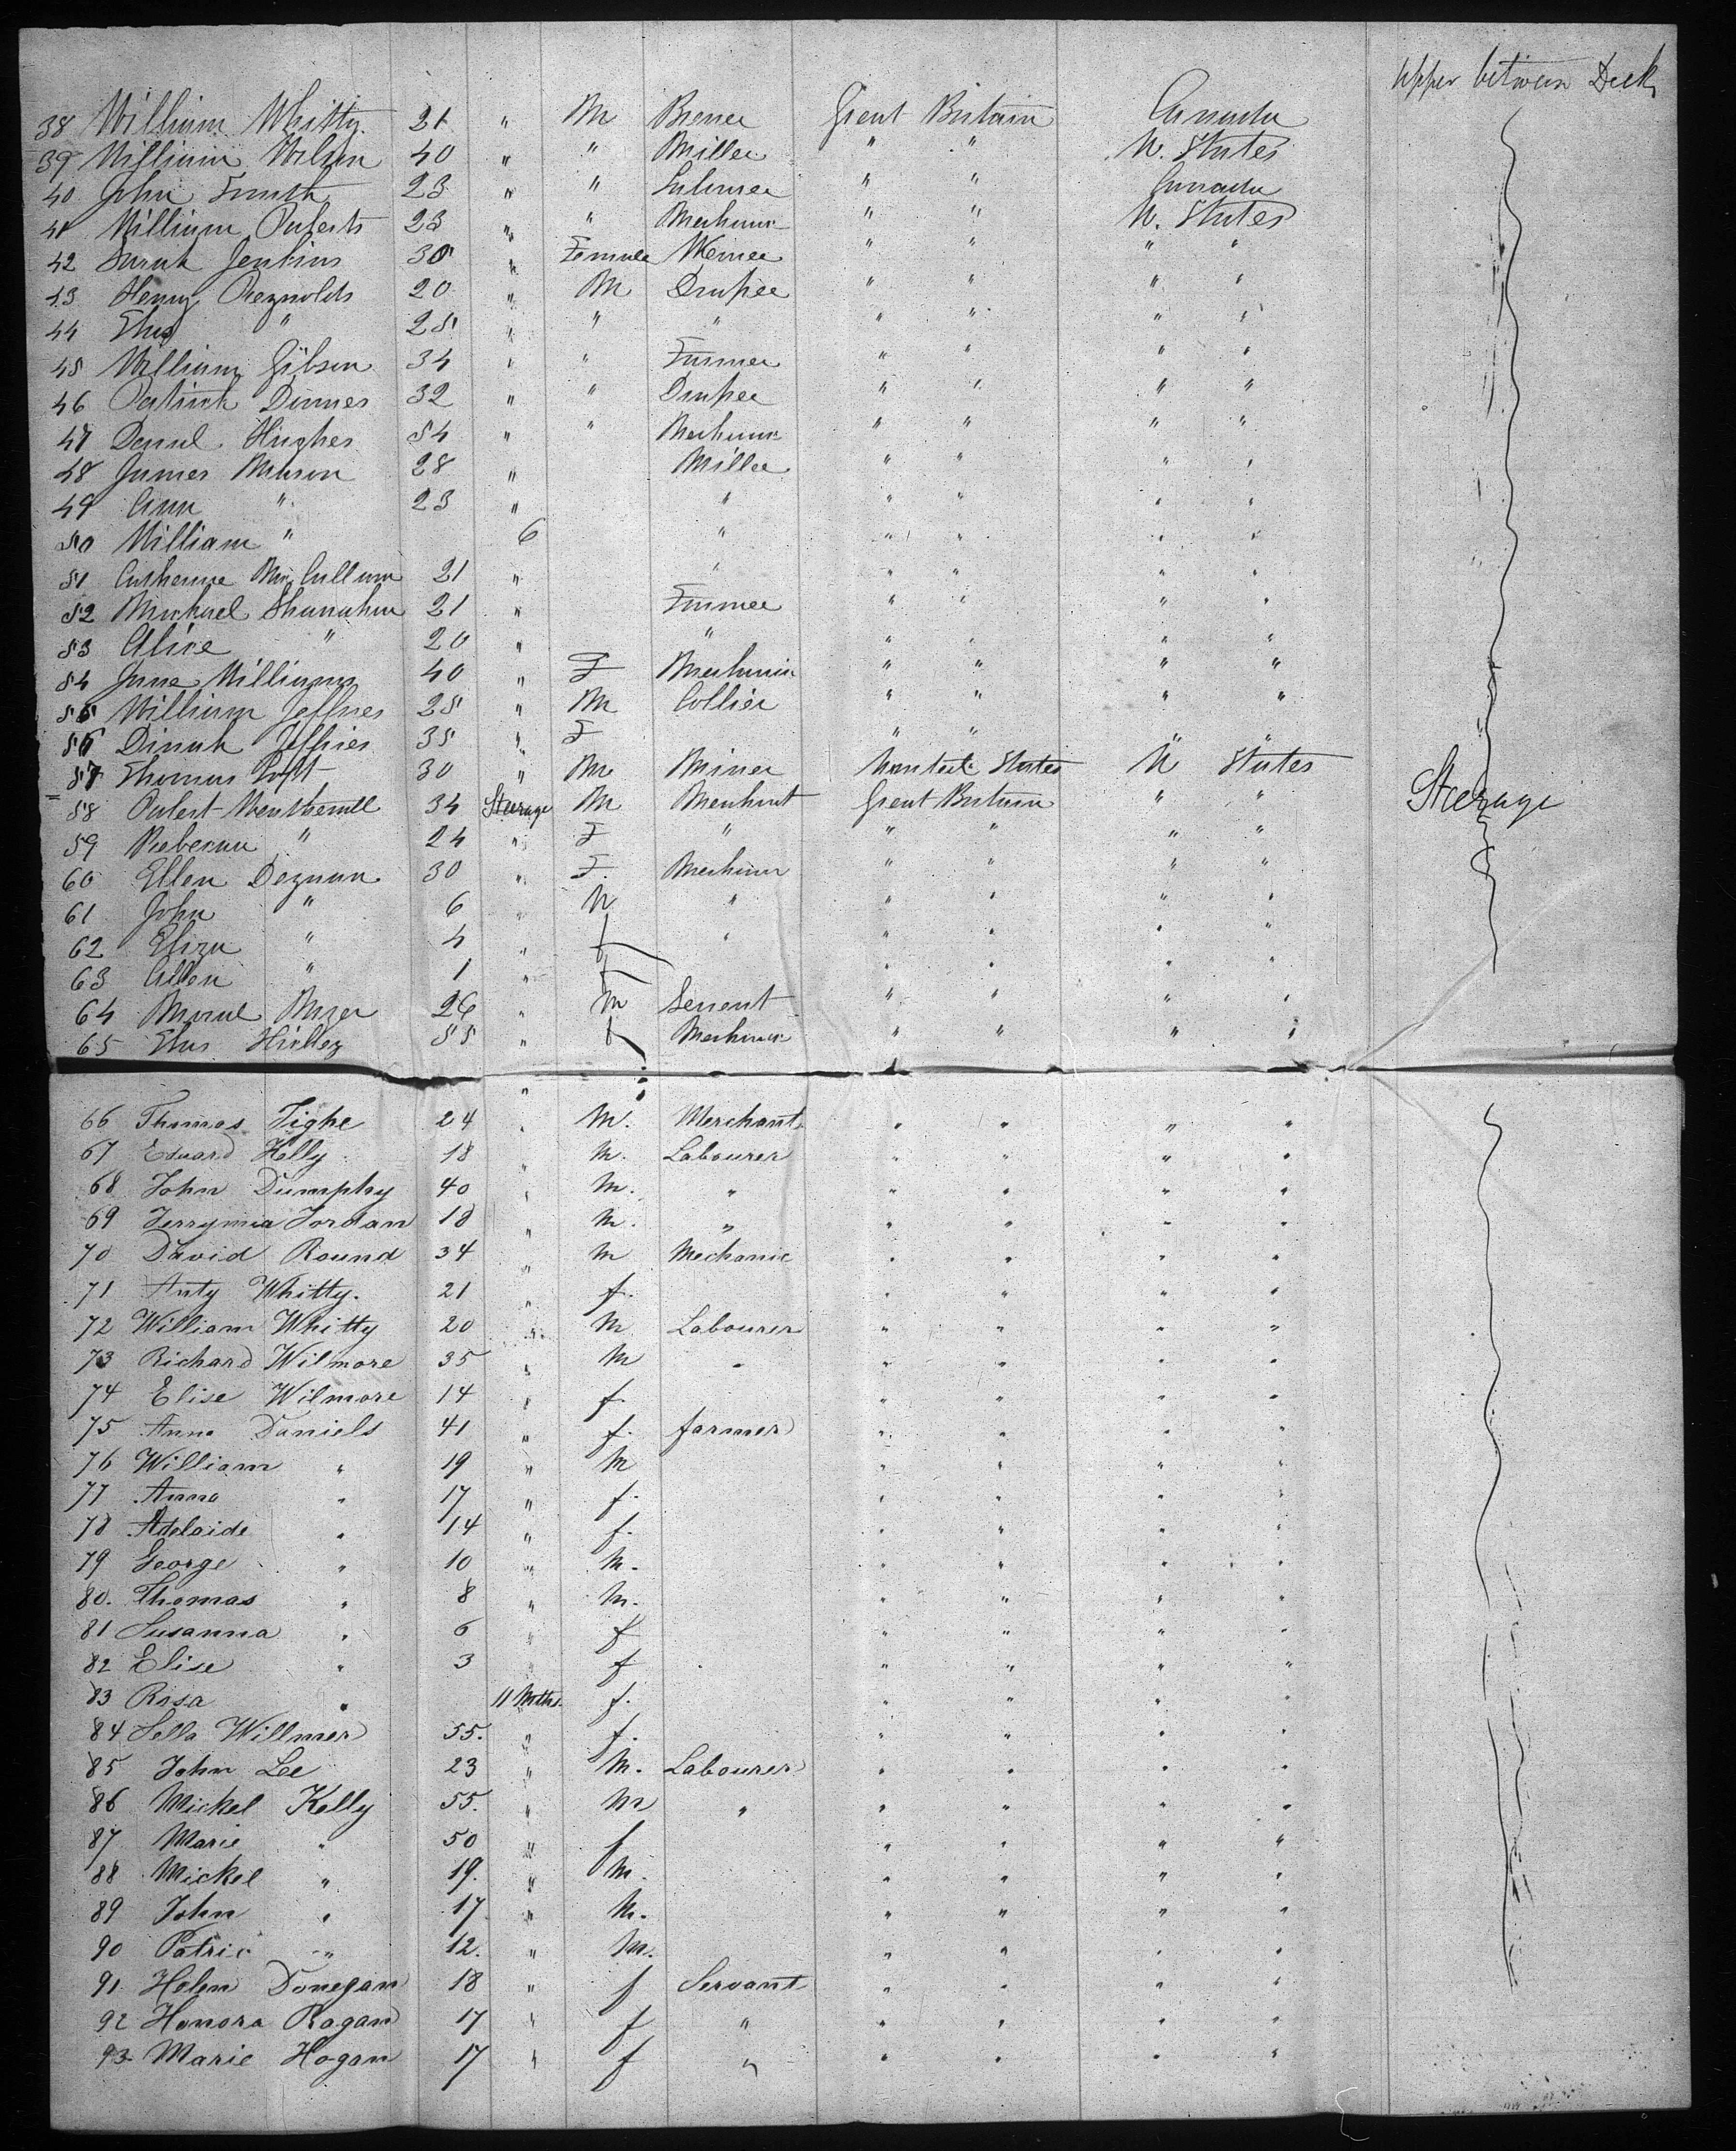 Upper between Deck
38 William Whitty 21 " M Great Britain Canada
39 William Wilson 40 " " Miller " " U. States
40 John Smith 23 " " " " Canada
41 William Roberts 23 " " Mechanic " " U. States
42 Sarah Jenkins 30 " Female " " " "
43 Henry Reynolds 20 " M Draper " " " "
44 " 25 " " " " " " "
45 William Gibson 34 " " Farmer " " " "
46 Patrick 32 " " Draper " " " "
47 Daniel Hughes 54 " " Mechanic " " " "
48 James Mason 28 " Miller " " " "
49 Ann " 23 " " " " " "
50 William " 6 " " " " "
51 Catherine Mc Cullum 21 " " " " " "
52 Michael Shanahan 21 " Farmer " " " "
53 Alice " 20 " " " " " "
54 Jane Williams 40 " F Mechanic " " " "
55 William Jeffries 25 " M Collier " " " "
56 Dinah Jeffries 35 " F " " " "
57 Thomas Loft 30 " M Miner States U States
58 Robert 34 Steerage M Merchant Great Britain " " Steerage
59 Rebecca " 24 " F " " " " "
60 Ellen Degnan 30 " F. Mechanic " " " "
61 John " 6 " M " " " " "
62 Eliza " 4 " f " " " " "
63 Allen " 1 " f " " " "
64 26 " M Servent " " " "
65 Hickey 55 " f Mechanic " " " "
66 Thomas Tighe 24 " M. Merchant " " " "
67 Eduard Kelly 18 " M. Labourer " " " "
68 John Dumphy 40 " M. " " " " "
69 Jerrymia Jordan 18 " M. " " " " "
70 David Round 34 " M Mechanic " " " "
71 Anty Whitty. 21 " f. " " " "
72 William Whitty 20 " M Labourer " " " "
73 Richard Wilmore 35 " M " " " " "
74 Elise Wilmore 14 " f " " " "
75 Anna Daniels 41 " f. farmer " " " "
76 William " 19 " M " " " "
77 Anna " 17 " f. " " " "
78 Adelaide " 14 " f. " " " "
79 George " 10 " M. " " " "
80. Thomas " 8 " M. " " " "
81 Susanna " 6 " f " " " "
82 Elise " 3 " f " " " "
83 Rosa " 11 Mths. f. " " " "
84 Sella Willmer 55. " f. " " " "
85 John Lee 23 " M. Labourer " " " "
86 Mickel Kelly 55. " M " " " " "
87 Marie " 50 " f " " " "
88 Mickel " 19. " M. " " " "
89 John " 17 " M. " " " "
90 Patric " 12. " M. " " " "
91 Helen Donegan 18 " f Servant " " " "
92 Honora Ragan 17 " f " " " " "
93 Marie Hogan 17 " f " " " " "